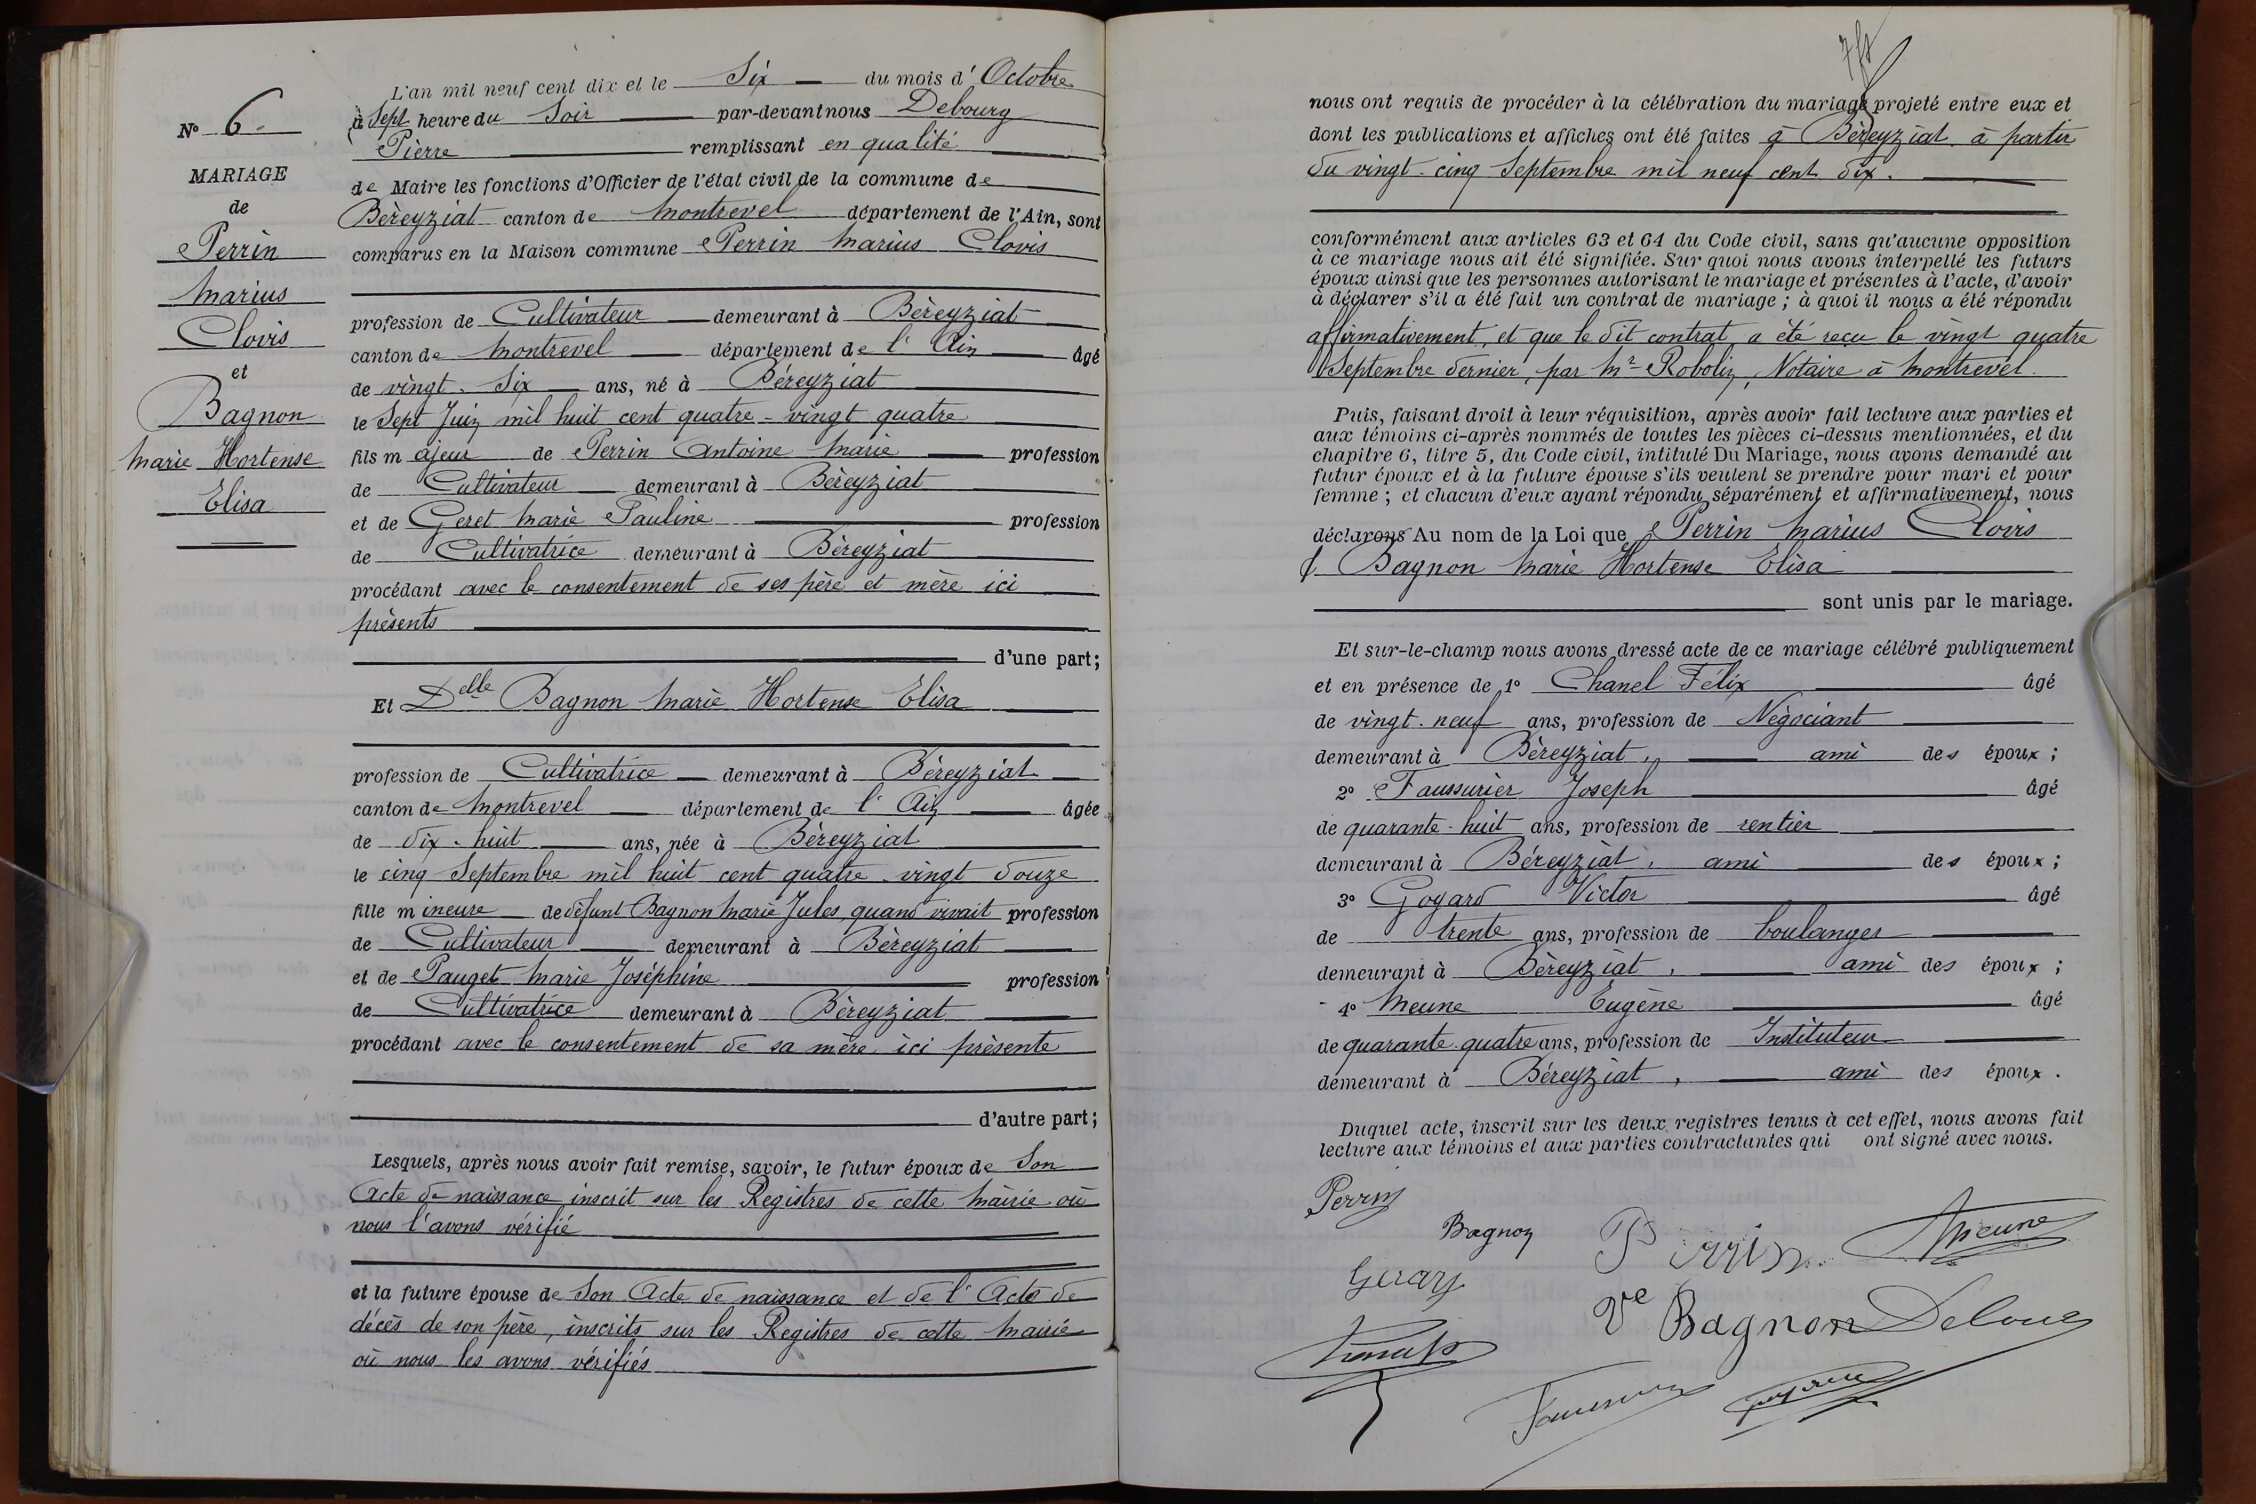 N° 6.
MARIAGE
de
Perrin
Marius
Clovis
et
Bagnon
Marie Hortense
Elisa
L'an mil neuf cent dix et le Six du mois d' Octobre
à Sept heure du Soir par-devant nous Debourg
Pierre remplissant en qualité
de Maire les fonctions d'Officier de l'état civil de la commune de
Bèreyziat canton de Montrevel département de l'Ain, sont
comparus en la Maison commune Perrin Marius Clovis
profession de Cultivateur demeurant à Bèreyziat
canton de Montrevel département de l'Ain âgé
de vingt-six ans, né à Béreyziat
le Sept Juin mil huit cent quatre-vingt quatre
fils majeur de Perrin Antoine Marie profession
de Cultivateur demeurant à Bèreyziat
et de Geret Marie Pauline profession
de Cultivatrice demeurant à Bèreyziat
procédant avec le consentement de ses père et mère ici
présents
d'une part;
Et Delle Bagnon Marie Hortense Elisa
profession de Cultivatrice demeurant à Bèreyziat
canton de Montrevel département de l'Ain âgée
de dix-huit ans, née à Bèreyziat
le cinq Septembre mil huit cent quatre-vingt douze
fille mineure de défunt Bagnon Marie Jules, quand vivait profession
de Cultivateur demeurant à Bèreyziat
et de Pauget Marie Joséphine profession
de Cultivatrice demeurant à Bèreyziat
procédant avec le consentement de sa mère ici présente
d'autre part;
Lesquels, après nous avoir fait remise, savoir, le futur époux de Son
Acte de naissance inscrit sur les Registres de cette Mairie où
nous l'avons vérifié
et la future épouse de Son Acte de naissance et de l'Acte de
décès de son père, inscrits sur les Registres de cette Mairie
où nous les avons vérifiés
nous ont requis de procéder à la célébration du mariage projeté entre eux et
dont les publications et affiches ont été faites à Bèreyziat à partir
du vingt-cinq Septembre mil neuf cent dix.
conformément aux articles 63 et 64 du Code civil, sans qu'aucune opposition
à ce mariage nous ait été signifiée. Sur quoi nous avons interpellé les futurs
époux ainsi que les personnes autorisant le mariage et présentes à l'acte, d'avoir
à déclarer s'il a été fait un contrat de mariage ; à quoi il nous a été répondu
affirmativement, et que le dit contrat a été reçu le vingt quatre
Septembre dernier, par Mr Robolin, Notaire à Montrevel.
Puis, faisant droit à leur réquisition, après avoir fait lecture aux parties et
aux témoins ci-après nommés de toutes les pièces ci-dessus mentionnées, et du
chapitre 6, titre 5, du Code civil, intitulé Du Mariage, nous avons demandé au
futur époux et à la future épouse s'ils veulent se prendre pour mari et pour
femme ; et chacun d'eux ayant répondu séparément et affirmativement, nous
déclarons Au nom de la Loi que Perrin Marius Clovis
& Bagnon Marie Hortense Elisa
sont unis par le mariage.
Et sur-le-champ nous avons dressé acte de ce mariage célébré publiquement
et en présence de 1° Chanel Félix âgé
de vingt-neuf ans, profession de Négociant
demeurant à Bèreyziat, ami des époux ;
2° Faussurier Joseph âgé
de quarante-huit ans, profession de rentier
demeurant à Béreyziat, ami des époux ;
3° Goyard Victor âgé
de trente ans, profession de boulanger
demeurant à Bèreyziat, ami des époux ;
4° Meune Eugène âgé
de quarante-quatre ans, profession de Instituteur
demeurant à Béreyziat, ami des époux.
Duquel acte, inscrit sur les deux registres tenus à cet effet, nous avons fait
lecture aux témoins et aux parties contractantes qui ont signé avec nous.
Perrin
Bagnon
Perrin
Meune
Ve Bagnon